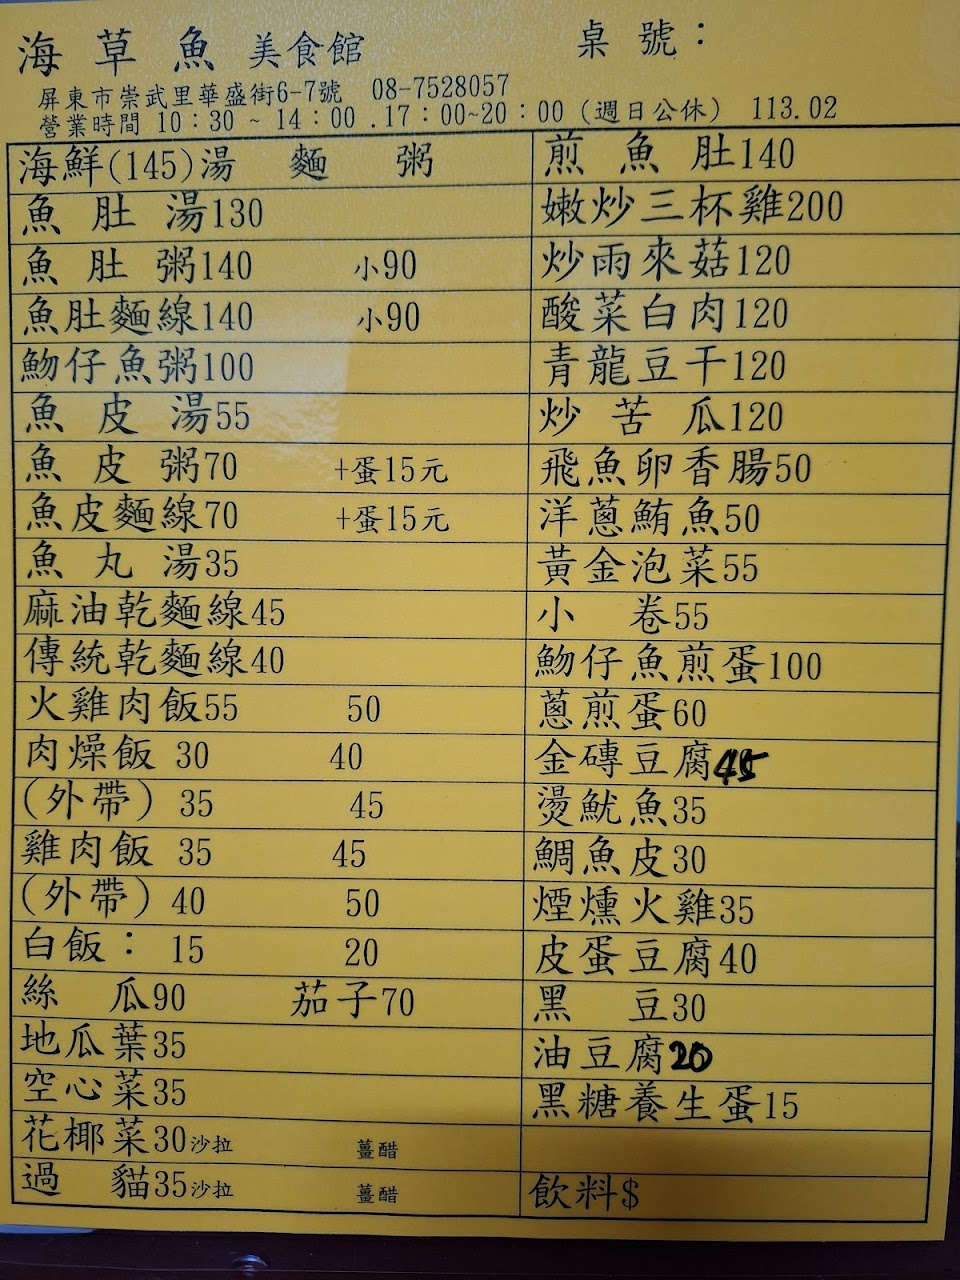 海草魚 美食館 桌號：
屏東市崇武里華盛街6-7號 08-7528057
營業時間 10：30 ~ 14：00 .17：00~20：00 (週日公休) 113.02
海鮮(145)湯 麵 粥
魚肚湯130
魚肚粥140 小90
魚肚麵線140 小90
魩仔魚粥100
魚皮湯55
魚皮粥70 +蛋15元
魚皮麵線70 +蛋15元
魚丸湯35
麻油乾麵線45
傳統乾麵線40
火雞肉飯55 50
肉燥飯 30 40
(外帶) 35 45
雞肉飯 35 45
(外帶) 40 50
白飯： 15 20
絲瓜90 茄子70
地瓜葉35
空心菜35
花椰菜30沙拉 薑醋
過貓35沙拉 薑醋
煎魚肚140
嫩炒三杯雞200
炒雨來菇120
酸菜白肉120
青龍豆干120
炒苦瓜120
飛魚卵香腸50
洋蔥鮪魚50
黃金泡菜55
小卷55
魩仔魚煎蛋100
蔥煎蛋60
金磚豆腐45
燙魷魚35
鯛魚皮30
煙燻火雞35
皮蛋豆腐40
黑豆30
油豆腐20
黑糖養生蛋15
飲料$